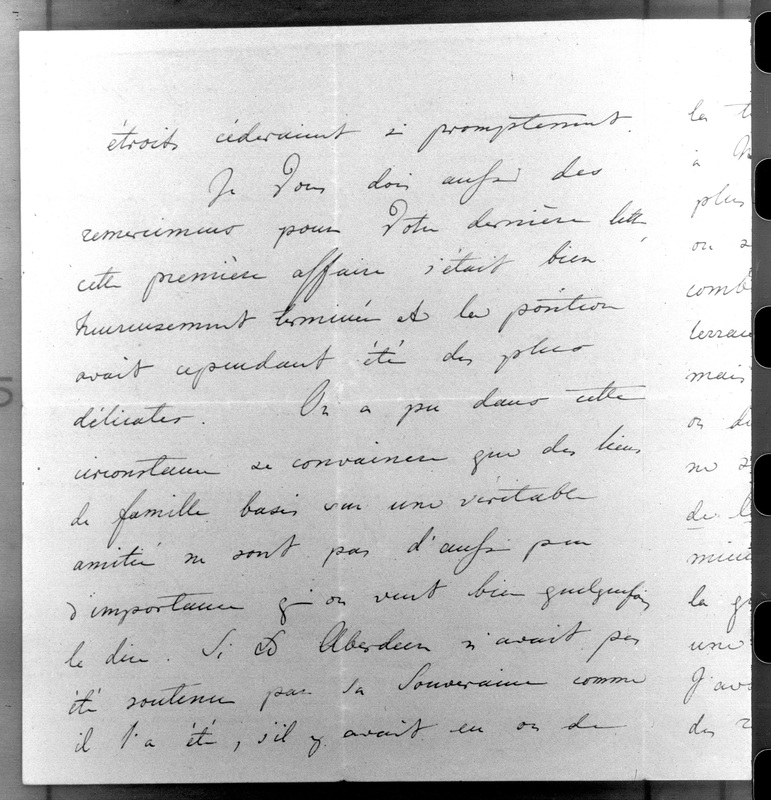 étroits céderaient si promptement.
Je Vous dois aussi des
remercimens pour Votre dernière lettre,
cette première affaire s'était bien
heureusement terminée et la position
avait cependant été des plus
délicates. On a pu dans cette
circonstance se convaincre que des liens
de famille basés sur une véritable
amitié ne sont pas d'aussi peu
d'importance qu'on veut bien quelquefois
le dire. Si Ld Aberdeen n'avait pas
été soutenu par sa Souveraine comme
il l'a été, s'il y avait eu ou de
la
à
plus
ou
comb
terrain
mais
ou
ne
de l
la
une
J'av
des